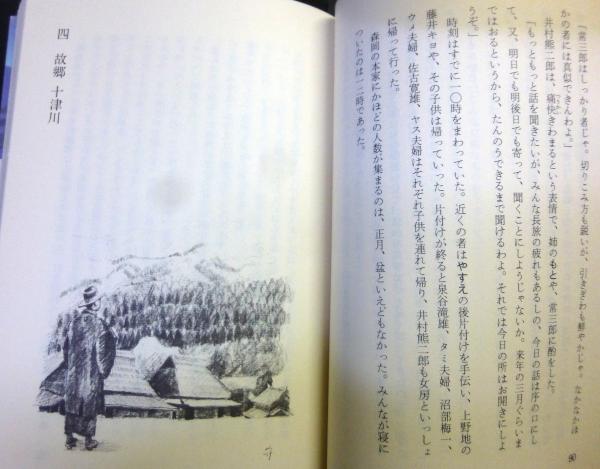 「常三郎はしっかり者じゃ。切りこみ方も鋭いが、引きぎわも鮮やかじゃ。なかなかほ
かの者には真似できんわよ。」
井村熊二郎は、痛快きわまるという表情で、姉のもとや、常三郎に酌をした。
「もっともっと話を聞きたいが、みんな長旅の疲れもあるしの、今日の話は序の口にし
て、又、明日でも明後日でも寄って、聞くことにしようじゃないか。来年の三月ぐらいま
ではおるというから、たんのうできるまで聞けるわよ。それでは今日の所はお開きにしよ
うぞ。」
時刻はすでに一〇時をまわっていた。近くの者はやすえの後片付けを手伝い、上野地の
藤井キヨや、その子供は帰っていった。片付けが終ると泉谷滝雄、タミ夫婦、沼部梅一、
ウメ夫婦、佐古寛雄、ヤス夫婦はそれぞれ子供を連れて帰り、井村熊二郎も女房といっしょ
に帰って行った。
森岡の本家にかほどの人数が集まるのは、正月、盆といえどもなかった。みんなが寝に
ついたのは一二時であった。
90
四 故郷 十津川